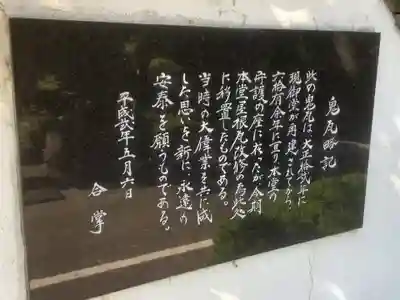 鬼瓦略記
此の鬼瓦は、大正拾弐年に
現御堂が再建されてより、
六拾有余年に亘り本堂の
守護の座に在ったが今期
本堂屋根瓦改修の為此処
に移置したものである。
当時の大偉業を共に成
した思いを新に、永遠の
安泰を願うものである。
平成弐年五月六日
合掌